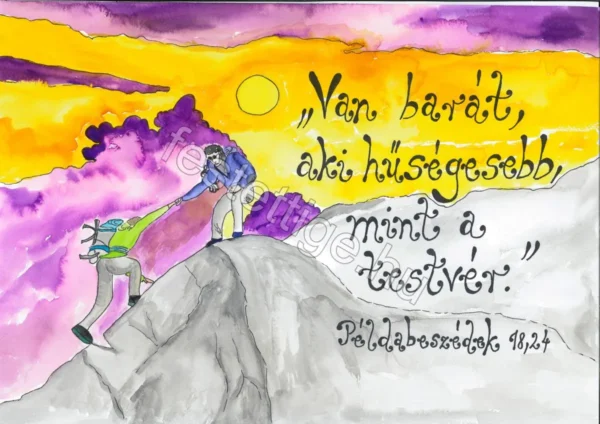 „Van barát,
aki hűségesebb,
mint a
testvér.”
Példabeszédek 18,24
festettige.hu